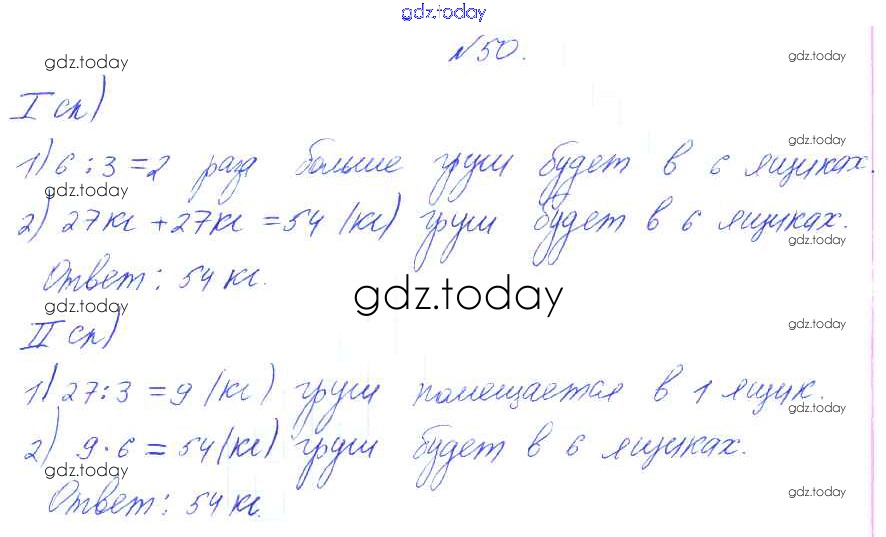 gdz.today
№50.
gdz.today gdz.today
I сп)
gdz.today
1) 6 : 3 = 2 раза больше груш будет в 6 ящиках.
gdz.today
2) 27кг + 27кг = 54 (кг) груш будет в 6 ящиках.
gdz.today
Ответ: 54 кг.
gdz.today
gdz.today gdz.today
II сп)
1) 27:3 = 9 (кг) груш помещается в 1 ящик.
gdz.today
2) 9·6 = 54(кг) груш будет в 6 ящиках.
gdz.today
Ответ: 54 кг.
gdz.today